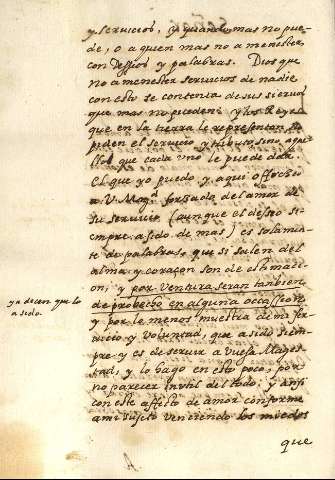 y servicios, y quando mas no pue-
de, o a quien mas no a menester
con desseos y palabras. Dios que
no a menester servicios de nadie
con esto se contenta de sus siervos
que mas no pueden: y los Reyes
que en la tierra le representan, no
piden el servicio y tributo, sino aque-
llos que cada uno le puede dar.
El que yo puedo, y aqui offrezco
a V. Mag. forçado del amor de
su servicio (aunque el desseo si-
empre a sido de mas) es solamen-
te de palabras, que si salen del
alma y coraçon son de estimaci-
on; y por ventura seran tambien
de probecho en alguna occassion,
y por lo menos muestra de mi
y voluntad, que a sido siem-
pre y es de servir a vuesa Mages-
tad, y lo hago en esto poco, por
no parecer inutil del todo: y assi
con este affecto de amor conforme
a mi sujeto venciendo los miedos
que
ya dicen que lo
a sido.